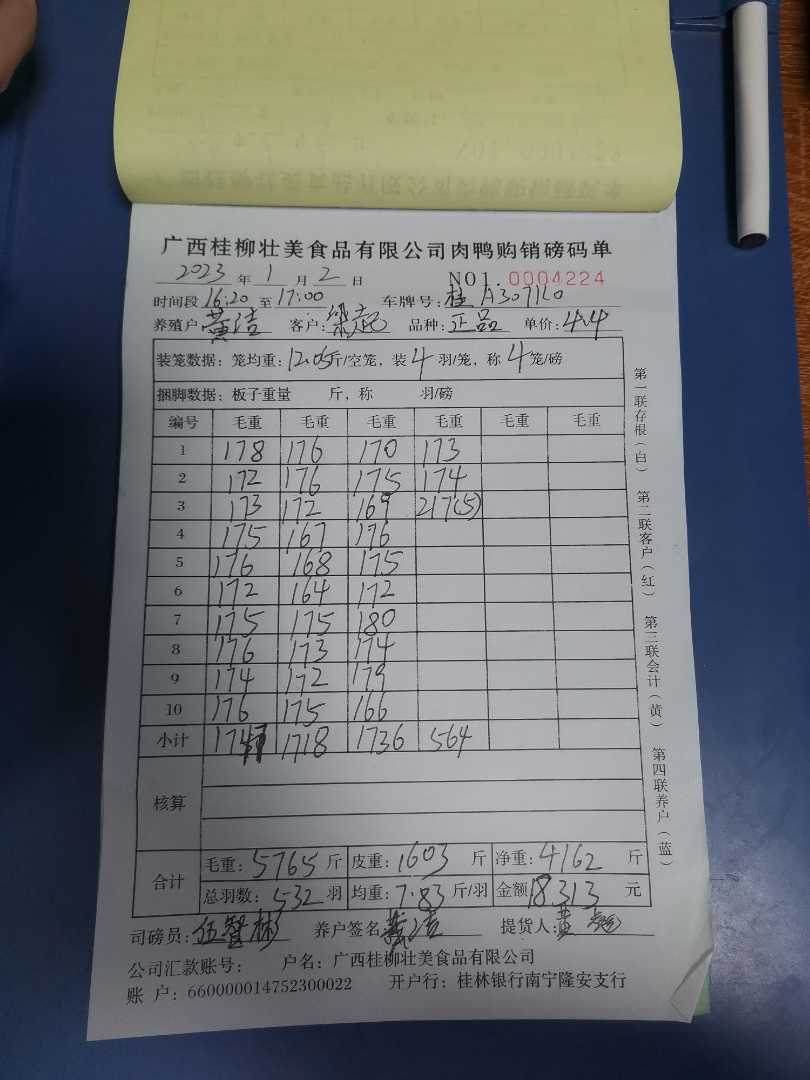 广西桂柳壮美食品有限公司肉鸭购销磅码单
2023 年 1 月 2 日 NO1. 0004224
时间段 16:20 至 17:00 车牌号: 桂A307K0
养殖户 黄洁 客户: 梁起 品种: 正品 单价: 4.4
装笼数据: 笼均重: 12.05斤/空笼, 装 4 羽/笼, 称 4 笼/磅
捆脚数据: 板子重量 斤, 称 羽/磅
编号 毛重 毛重 毛重 毛重 毛重 毛重
1 178 176 170 173
2 172 176 175 174
3 173 172 169 217(5)
4 175 167 176
5 176 168 175
6 172 164 172
7 175 175 180
8 176 173 174
9 174 172 179
10 176 175 166
小计 1747 1718 1736 564
核算
合计 毛重: 5765 斤 皮重: 1603 斤 净重: 4162 斤
总羽数: 532 羽 均重: 7.83 斤/羽 金额 18313 元
司磅员: 伍智彬 养户签名 黄洁 提货人: 黄
公司汇款账号: 户名: 广西桂柳壮美食品有限公司
账 户: 660000014752300022 开户行: 桂林银行南宁隆安支行
第一联存根(白) 第二联客户(红) 第三联会计(黄) 第四联养户(蓝)